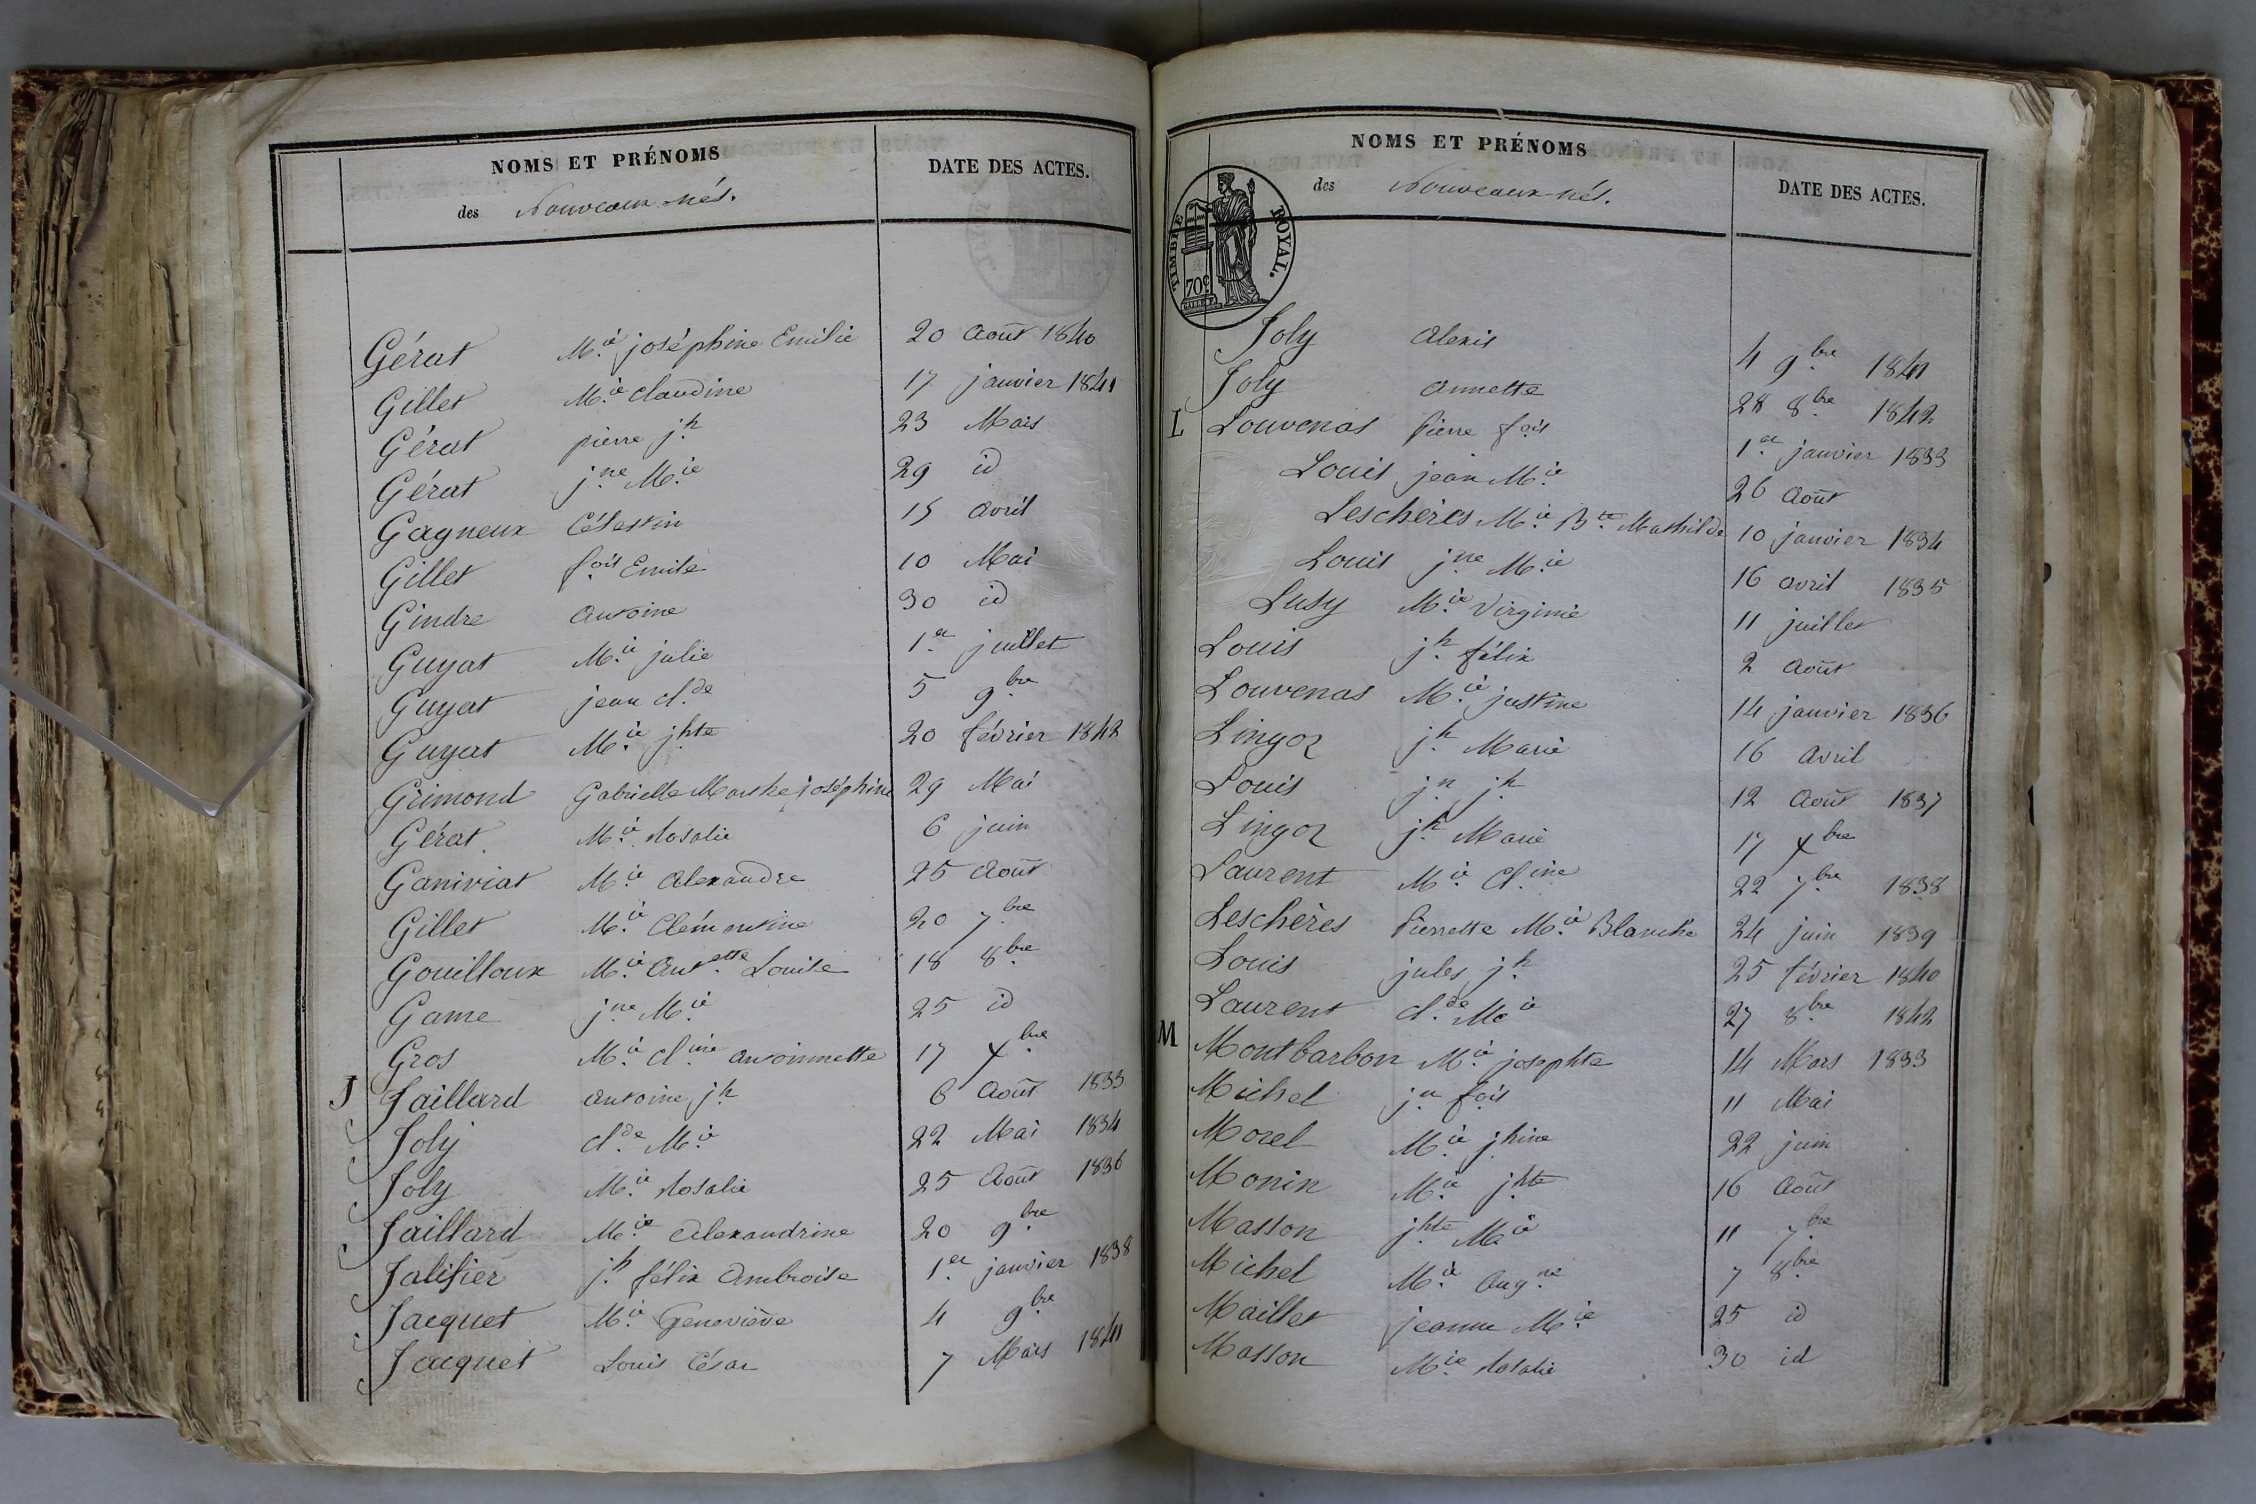 NOMS ET PRÉNOMS
DATE DES ACTES.
des Nouveaux-nés.
Gérat M.ie joséphine Emilie 20 Août 1840
Gillet M.ie Claudine 17 janvier 1841
Gérat pierre j.h 23 Mars
Gérat j.ne M.ie 29 id
Gagneux Célestin 15 avril
Gillet f.ois Emile 10 Mai
Gindre Antoine 30 id
Guyat M.ie julie 1.er juillet
Guyat jean cl.de 5 9.bre
Guyat M.ie j.hte 20 février 1842
Grimond Gabrielle Marthe joséphine 29 Mai
Gérat M.ie Rosalie 6 juin
Ganiviat M.ie Alexandre 25 Août
Gillet M.ie Clémentine 20 7.bre
Gouilloux M.ie Ant.ette Louise 18 8.bre
Game j.ne M.ie 25 id
Gros M.ie Cl.ine antoinnette 17 X.bre
J Jaillard antoine j.h 6 Août 1833
Joly cl.de M.ie 22 Mai 1834
Joly M.ie Rosalie 25 Août 1836
Jaillard M.ie Alexandrine 20 9.bre
Jalifier j.h félix Ambroise 1.er janvier 1838
Jacquet M.ie Geneviève 4 9.bre
Jacquet Louis César 7 Mars 1841
NOMS ET PRÉNOMS
des Nouveaux-nés.
DATE DES ACTES.
TIMBRE ROYAL.
70c
Joly Alexis 4 9.bre 1841
Joly annette 28 8.bre 1842
L Louvenas Pierre f.ois 1.er janvier 1833
Louis jean M.ie 26 Août
Leschères M.ie B.te Mathilde 10 janvier 1834
Louis j.ne M.ie 16 avril 1835
Lusy M.ie Virginie 11 juillet
Louis j.h félix 2 Août
Louvenas M.ie justine 14 janvier 1836
Lingoz j.h Marie 16 Avril
Louis j.n j.h 12 Août 1837
Lingoz j.h Marie 17 X.bre
Laurent M.ie Cl.ine 22 7.bre 1838
Leschères Pierrette M.ie Blanche 24 juin 1839
Louis jules j.h 25 février 1840
Laurent cl.de M.ie 27 8.bre 1842
M Montbarbon M.ie josephte 14 Mars 1833
Michel j.n f.ois 11 Mai
Morel M.ie j.hine 22 juin
Monin M.ie j.hte 16 Août
Masson j.hte M.ie 11 7.bre
Michel M.ie Aug.ne 7 8.bre
Maillet jeanne M.ie 25 id
Masson M.ie Rosalie 30 id